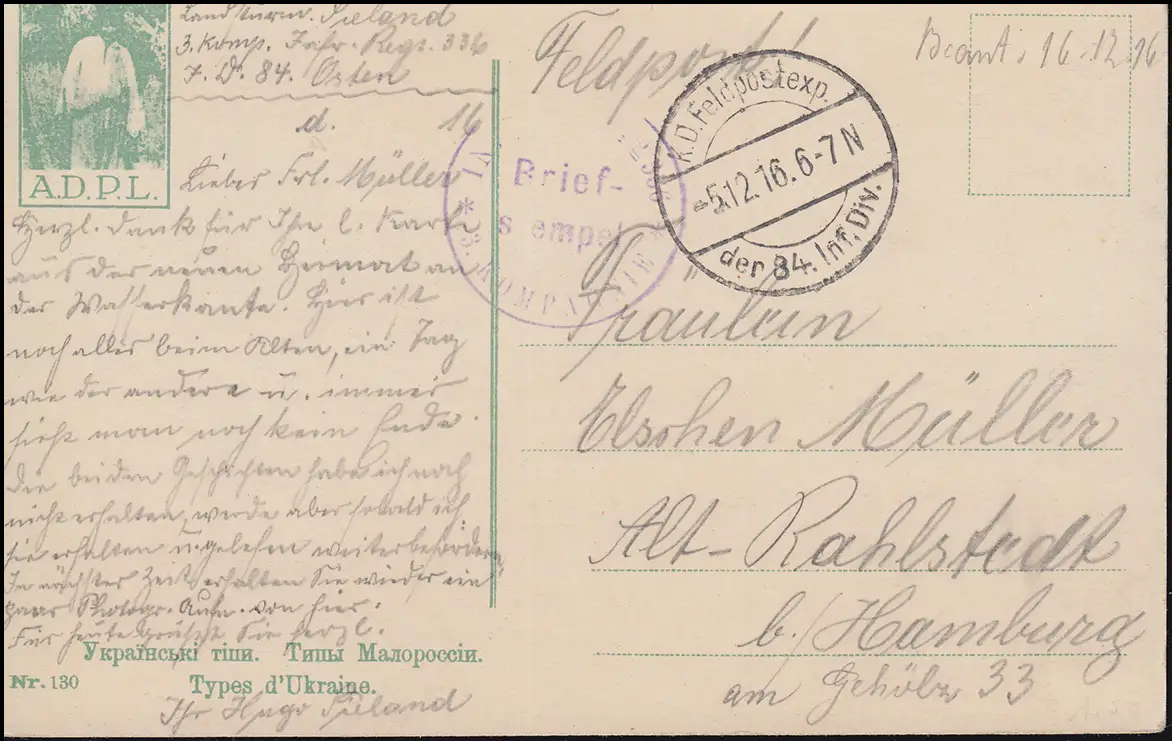 Landsturm. Sieland
3. Komp. Inftr. Regt. 336
I. D. 84. Osten
d. 16
Liebes Frl. Müller
Herzl. Dank für Ihre l. Karte
aus der neuen Heimat an
der Wasserkante. Hier ist
noch alles beim Alten, ein Tag
wie der andere u. immer
sieht man noch kein Ende.
Die beiden Geschichten habe ich noch
nicht erhalten, werde aber sobald ich
sie erhalten u. gelesen weiterbefördern.
In nächster Zeit erhalten Sie wieder ein
paar Photogr. Aufn. von hier.
Für heute grüßt Sie herzl.
Ihr Hugo Sieland
A.D.P.L.
Українські тіпи. Типы Малороссіи.
Nr. 130 Types d'Ukraine.
Feldpost
Beant. 16.12.16
K.D. Feldpostexp.
-5.12.16. 6-7 N
der 84. Inf. Div.
Brief-
s empel
* 3. KOMPAGNIE *
Fräulein
Elschen Müller
Alt-Rahlstedt
b./Hamburg
am Gehölz 33